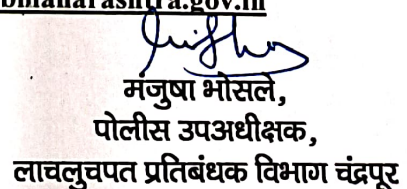 bmaharashtra.gov.in
मंजुषा भोसले,
पोलीस उपअधीक्षक,
लाचलुचपत प्रतिबंधक विभाग चंद्रपूर